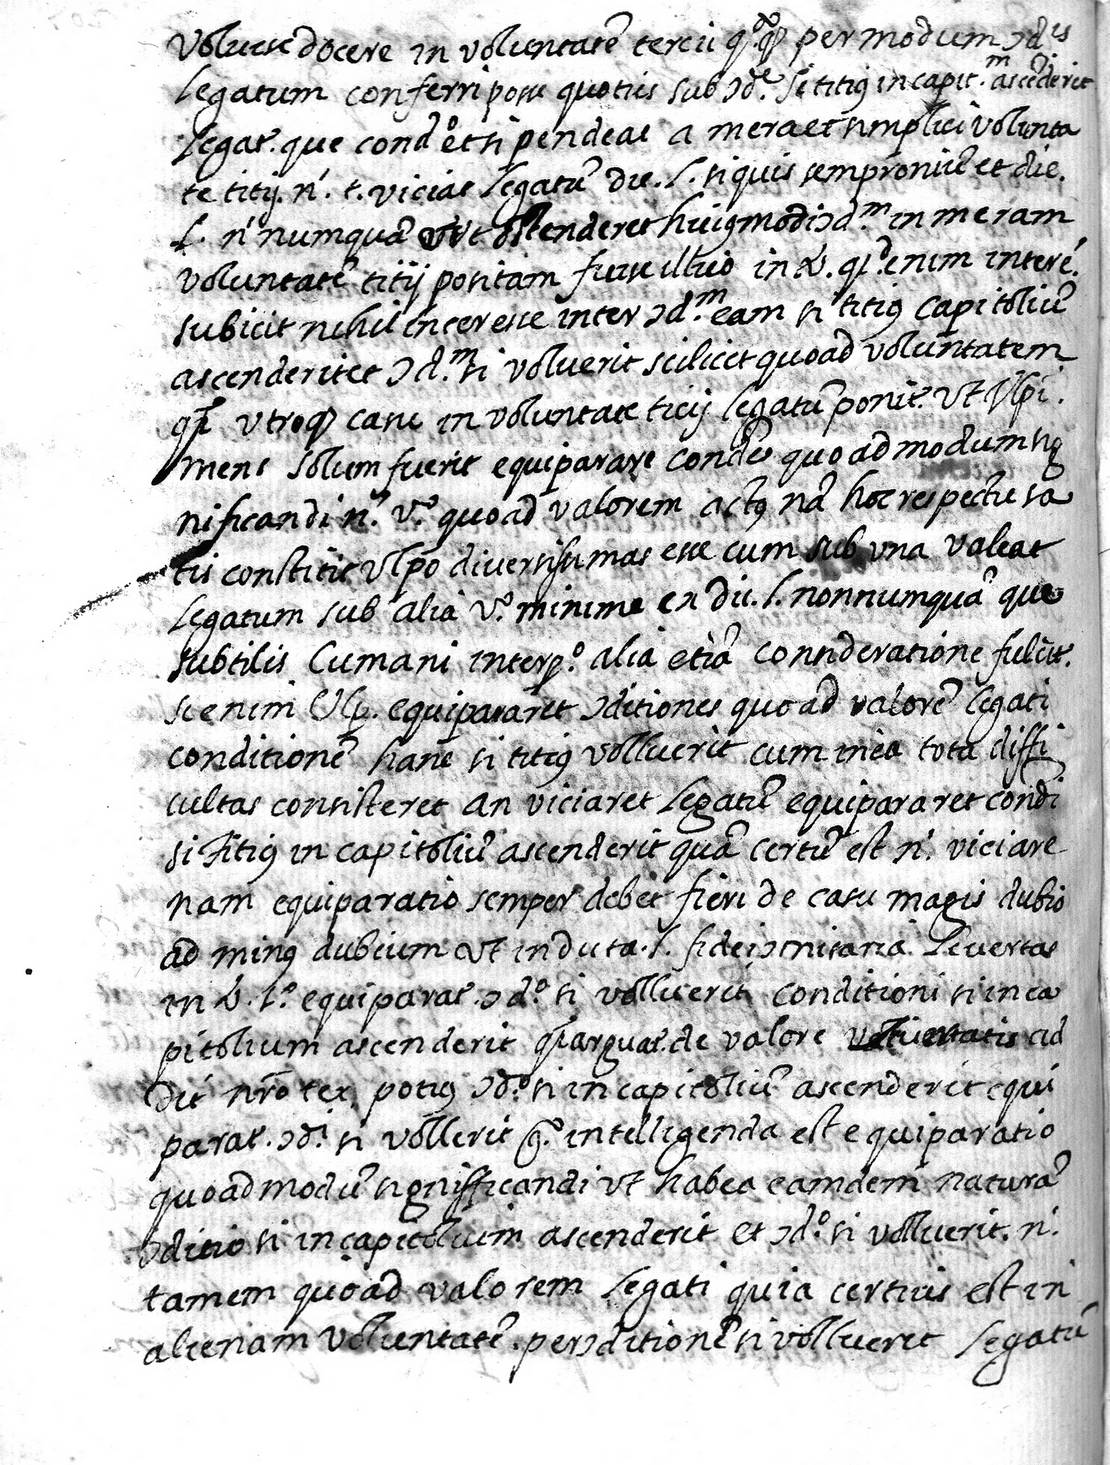 Voluisse docere in voluntatē tercii qa. qp per modum ↄdis
legatum conferri posse quotiis sub ↄde. si titiꝰ in capit.m ascēderit
legat. que condo et si pendeat a mera et simplici volunta
te titij. n̄. t. viciat legatū d. l. si quis semproniū et die.
l. n̄ numquā ostenderet huiꝰmodi ↄd.m in meram
voluntatē titij positam fuisse in d. qd enim interē.
subicit nihil interesse inter ↄd.m eam si titiꝰ capitoliū
ascenderit et ↄd.m si voluerit scilicet quoad voluntatem
qa utroqꝫ casu in voluntate ticij legatū ponit. ut Ulpi.
mens solum fuerit equiparare conde quo ad modum sig
nificandi n̄. vo. quoad valorem actꝰ nā hoc respectu sa
tis constitit Ulpo diversissimas esse cum sub una valeat
legatum sub alia vo. minime ex d. l. nonnumquā que
subtilis Cumani interp.o alia etiā consideratione fulcit.
sic enim Ulp. equipararet ↄditiones quo ad valorē legati
conditionē hanc si titiꝰ volluerit cum in ea tota diffi
cultas consisteret an viciaret legatū equipararet condi
si Titiꝰ in capitoliū ascenderit quā certū est n̄. viciare
nam equiparatio semper debet fieri de casu magis dubio
ad minꝰ dubium ut in d. l. fideiↄmisaria
in d. l.o equiparat. ↄdo. si volluerit conditioni si in ca
pitolium ascenderit qa arguat. de valore ad
dit nr̄o tex. potiꝰ ↄdo. si in capitoliū ascenderit equi
parat. ↄdi. si vollerit qa. intelligenda est equiparatio
quo ad modū signifficandi ut habea eamdem naturā
ↄditio si in capitolium ascenderit et ↄdo. si volluerit. n̄.
tamem quoad valorem legati quia certius est in
alienam voluntatē. per ↄditionē si volluerit legatū